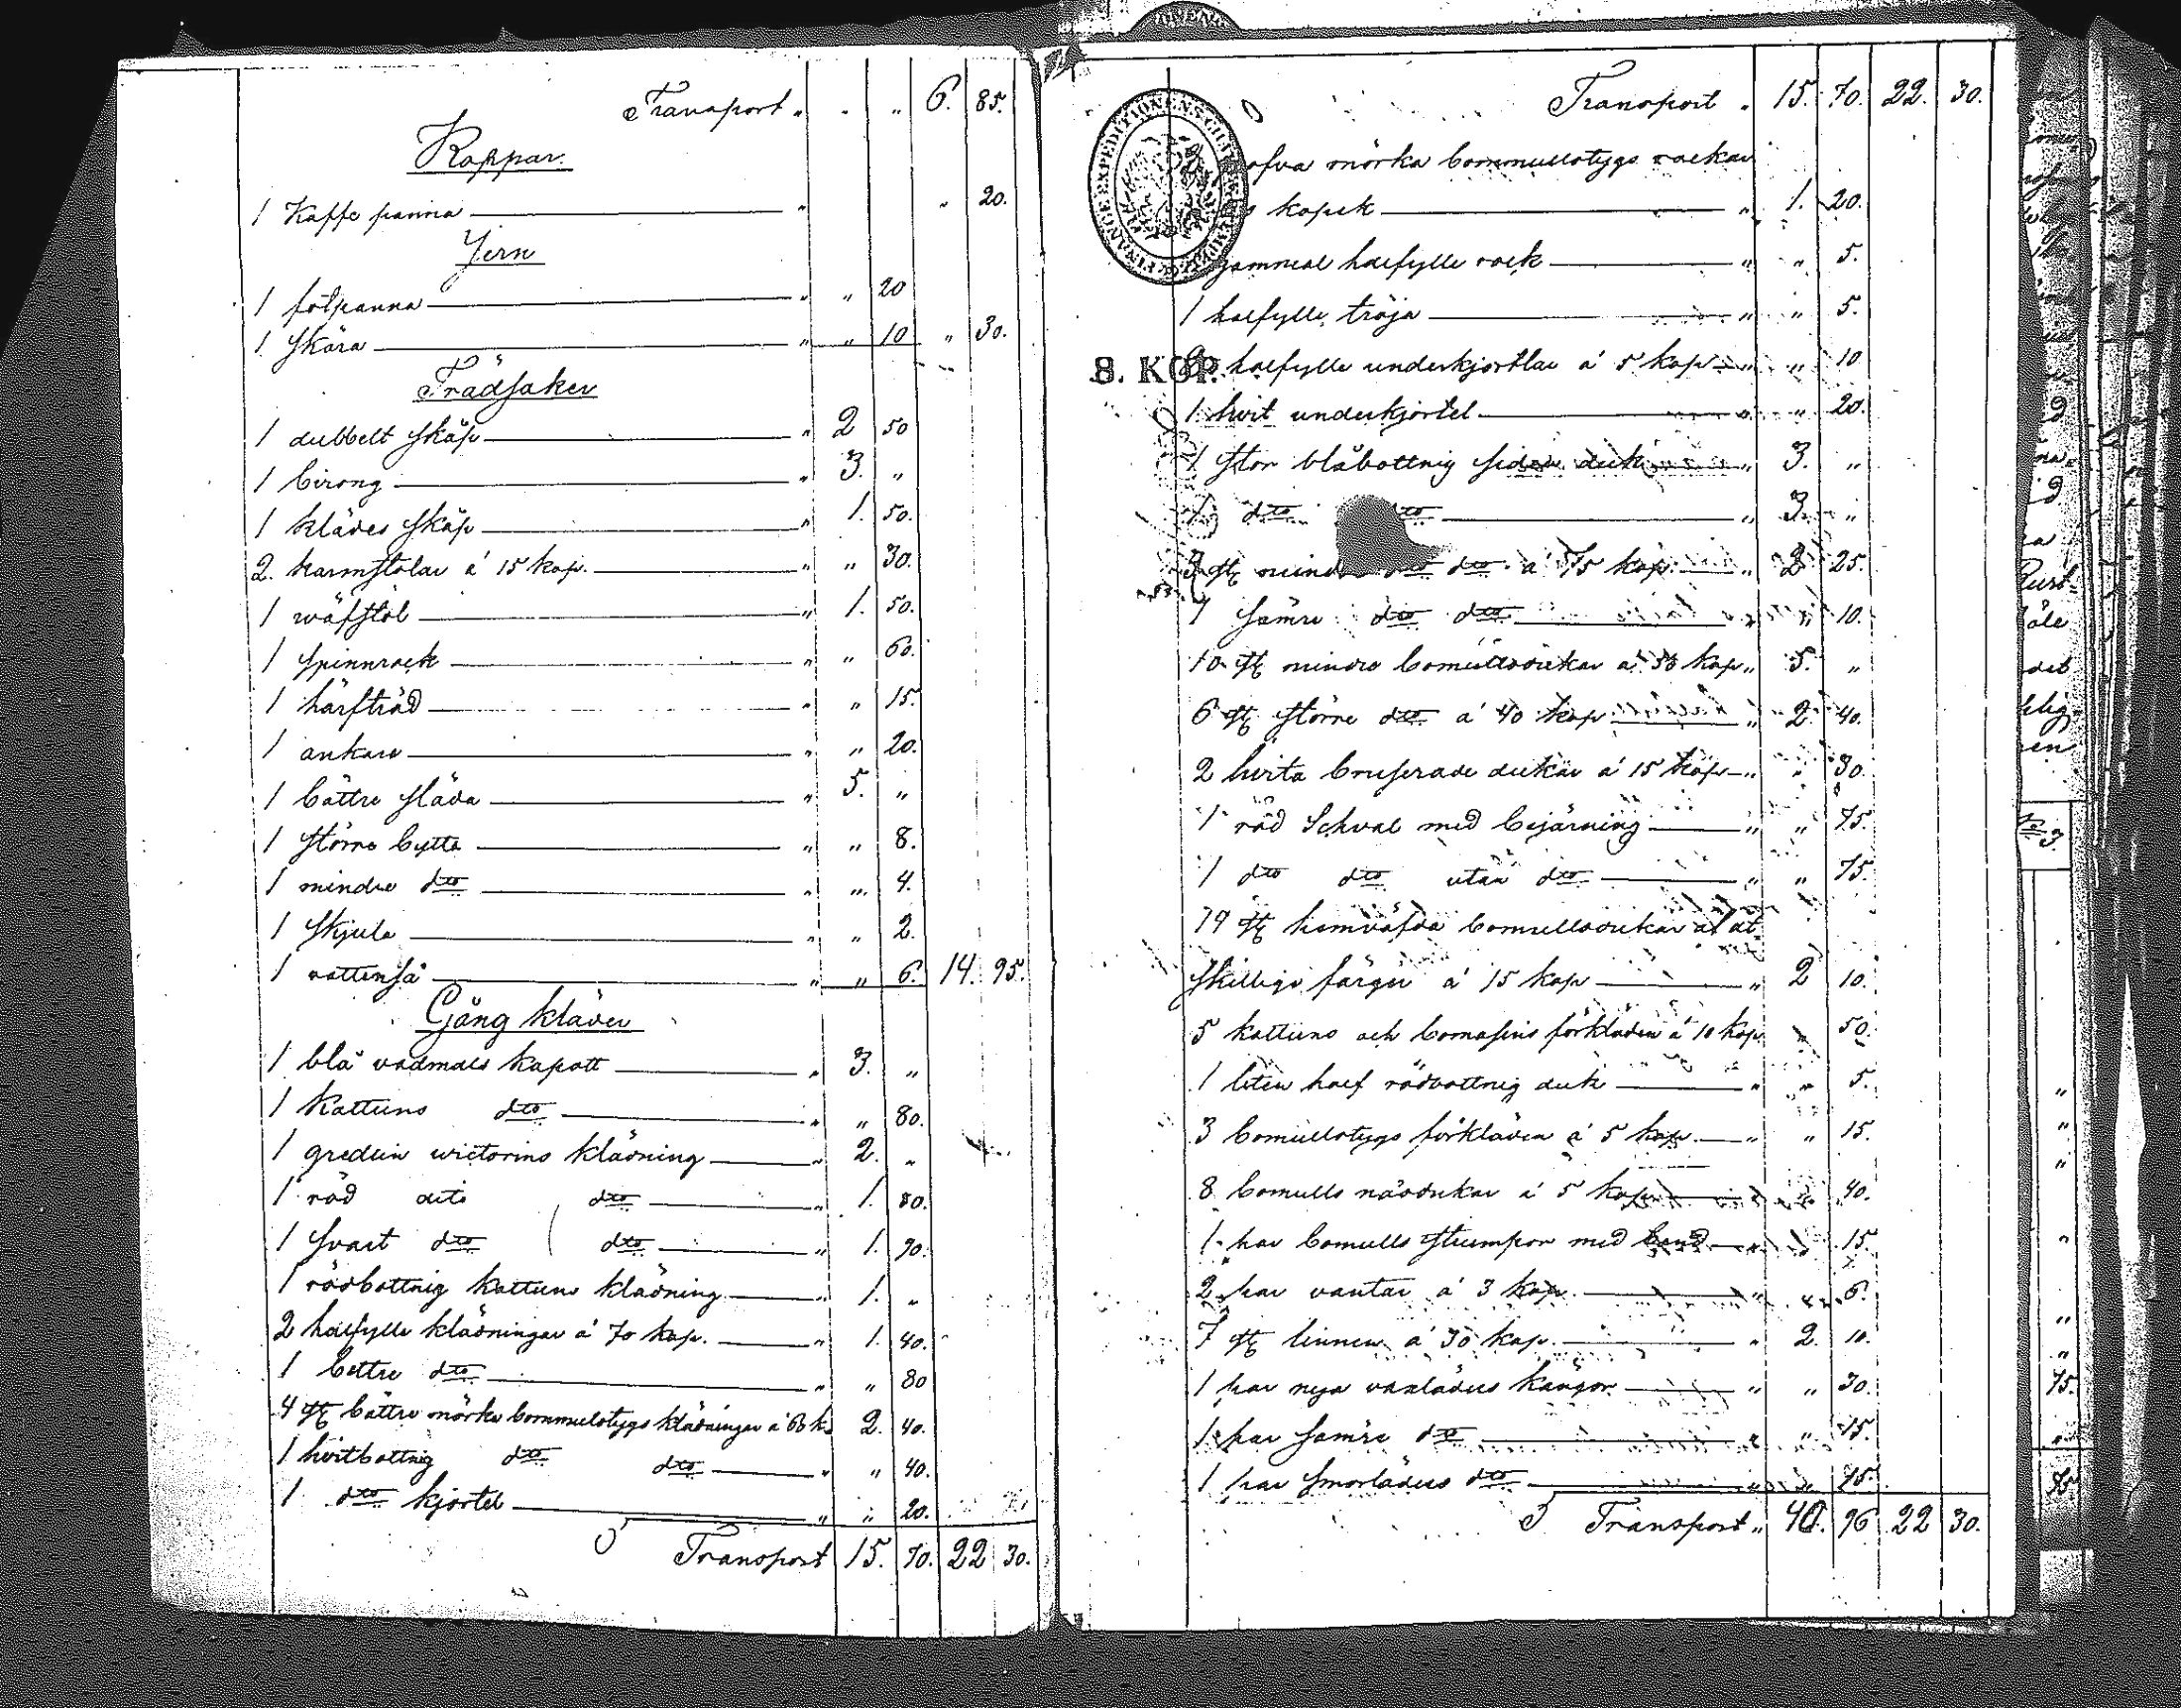 Transport " " " 6. 85.
Koppar.
1 Kaffe panna " " 20.
Jern
1 fotpanna " " 20
1 skära " " 10 " 30.
Trädsaker
1 dubbelt skåp " 2 50
1 birong " 3. "
1 klädes skåp " 1. 50.
2. karmstolar á 15 kop. " " 30.
1 wäfstol " 1. 50.
1 spinnrock " " 60.
1 härfträd " " 15.
1 ankare " " 20.
1 bättre släda " 5. "
1 större bytta " " 8.
1 mindre dto " " 4.
1 skjula " " 2.
1 vattenså " " 6. 14. 95.
Gång kläder
1 blå vadmals kapott " 3. "
1 kattuns dto " " 80.
1 gredlin wictorins klädning " 2. "
1 röd dito dto " 1. 80.
1 svart dto dto " 1. 90.
1 rödbottnig kattuns klädning " 1. "
2 halfylle klädningar á 70 kop. " 1. 40.
1 bettre dto " " 80
4 st bättre mörka bommulstygs klädningar á 60 k. 2. 40.
1 hvitbottnig dto dto " " 40.
1 dto kjortel " " 20.
Transport 15. 70. 22 30.
FINANCEEXPEDITIONENS CHARTÆ
Transport " 15. 70. 22. 30.
mörka bommullstygs rockar
kopek " 1. 20.
gammal halfylle rock " " 5.
1 halfylle tröja " " 5.
8. KOP.
halfylle underkjortlar á 5 kop " " 10
1 hvit underkjortel " " 20.
1 stor blåbottnig siden duk " 3. "
1 dto dto " 3. "
3 st mindre dto dto á 75 kop. " 2 25.
1 sämre dto dto " " 10.
10 st mindre bomullsdukar á 50 kop " 5. "
6 st större dto á 40 kop " 2 40.
2 hvita bruserade dukar á 15 kop " " 30.
1 röd schval med bejärning " " 75.
1 dto dto utan dto " " 75.
14 st hemväfda bomullsdukar af åt
skillige färger á 15 kop " 2 10.
5 kattuns och bomasins förkläden á 10 kop " 50.
1 liten half rödbottnig duk " " 5.
3 bomullstygs förkläden á 5 kop " " 15.
8 bomulls näsdukar á 5 kop " " 40.
1 par bomulls strumpor med band " " 15
2 par vantar á 3 kop. " " 6.
7 st linnen á 30 kop. " 2. 10.
1 par nya vaxläders kängor " " 30.
1 par sämre dto " " 15.
1 par smorläders dto " " 75.
Transport " 40. 96 22 30.